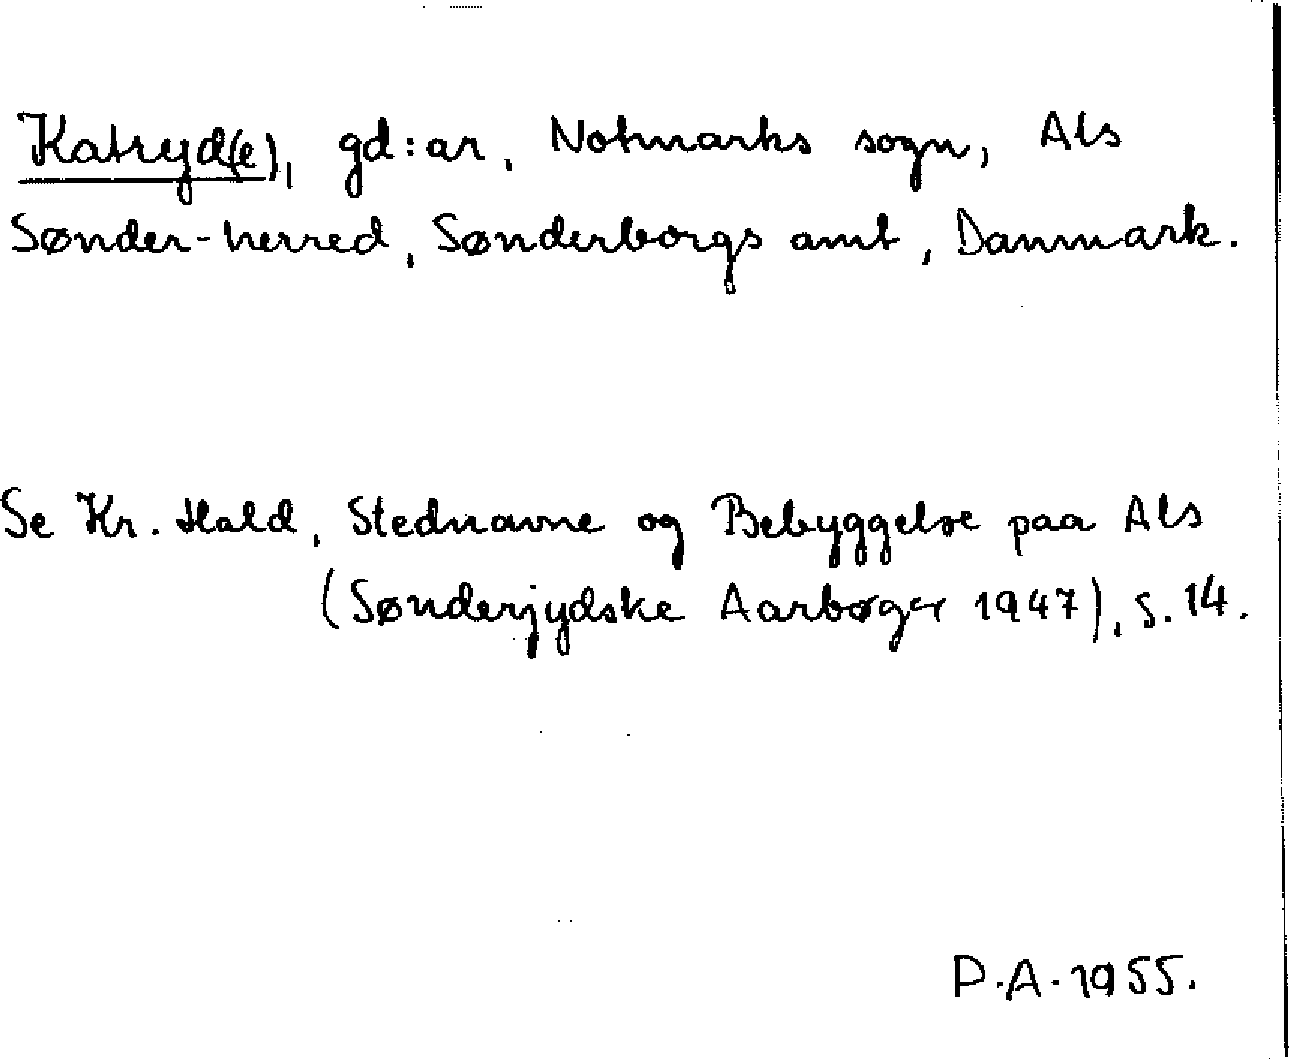 Katryd(e), gd:ar, Notmarks sogn, Als
Sønder-herred, Sønderborgs amt, Danmark.
Se Kr. Hald, Stednavne og Bebyggelse paa Als
(Sønderjydske Aarbøger 1947), s. 14.
P.A. 1955.